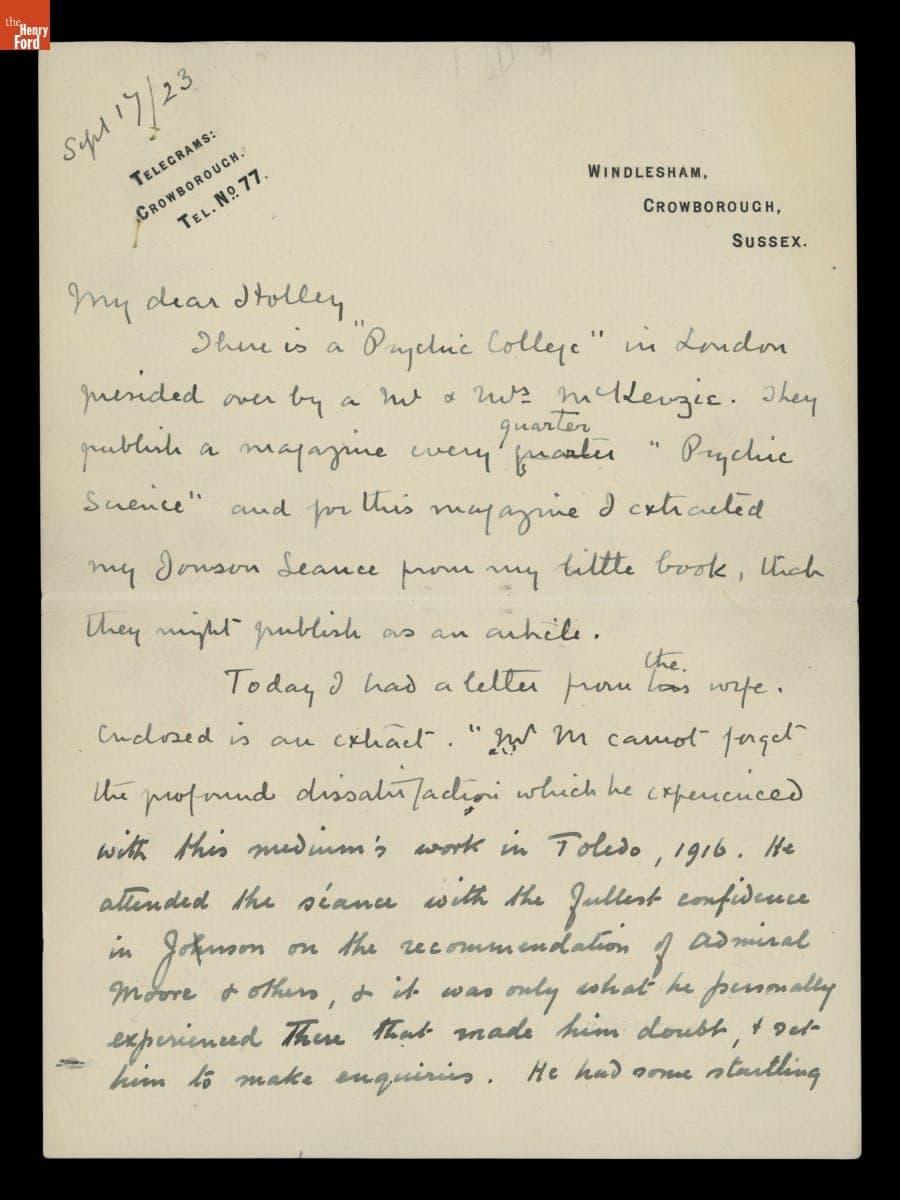 the
Henry
Ford
Sept 17/23
TELEGRAMS:
CROWBOROUGH.
TEL. No. 77.
WINDLESHAM,
CROWBOROUGH,
SUSSEX.
My dear Holley
There is a "Psychic College" in London
presided over by a Mr & Mrs McKenzie. They
quarter
publish a magazine every quarter " Psychic
Science" and for this magazine I extracted
my Jonson Seance from my little book, that
they might publish as an article.
the.
Today I had a letter from his wife.
Enclosed is an extract. " Mr M cannot forget
the profound dissatisfaction which he experienced
with this medium's work in Toledo, 1916. He
attended the séance with the fullest confidence
in Johnson on the recommendation of Admiral
Moore & others, & it was only what he personally
experienced there that made him doubt, & set
him to make enquiries. He had some startling